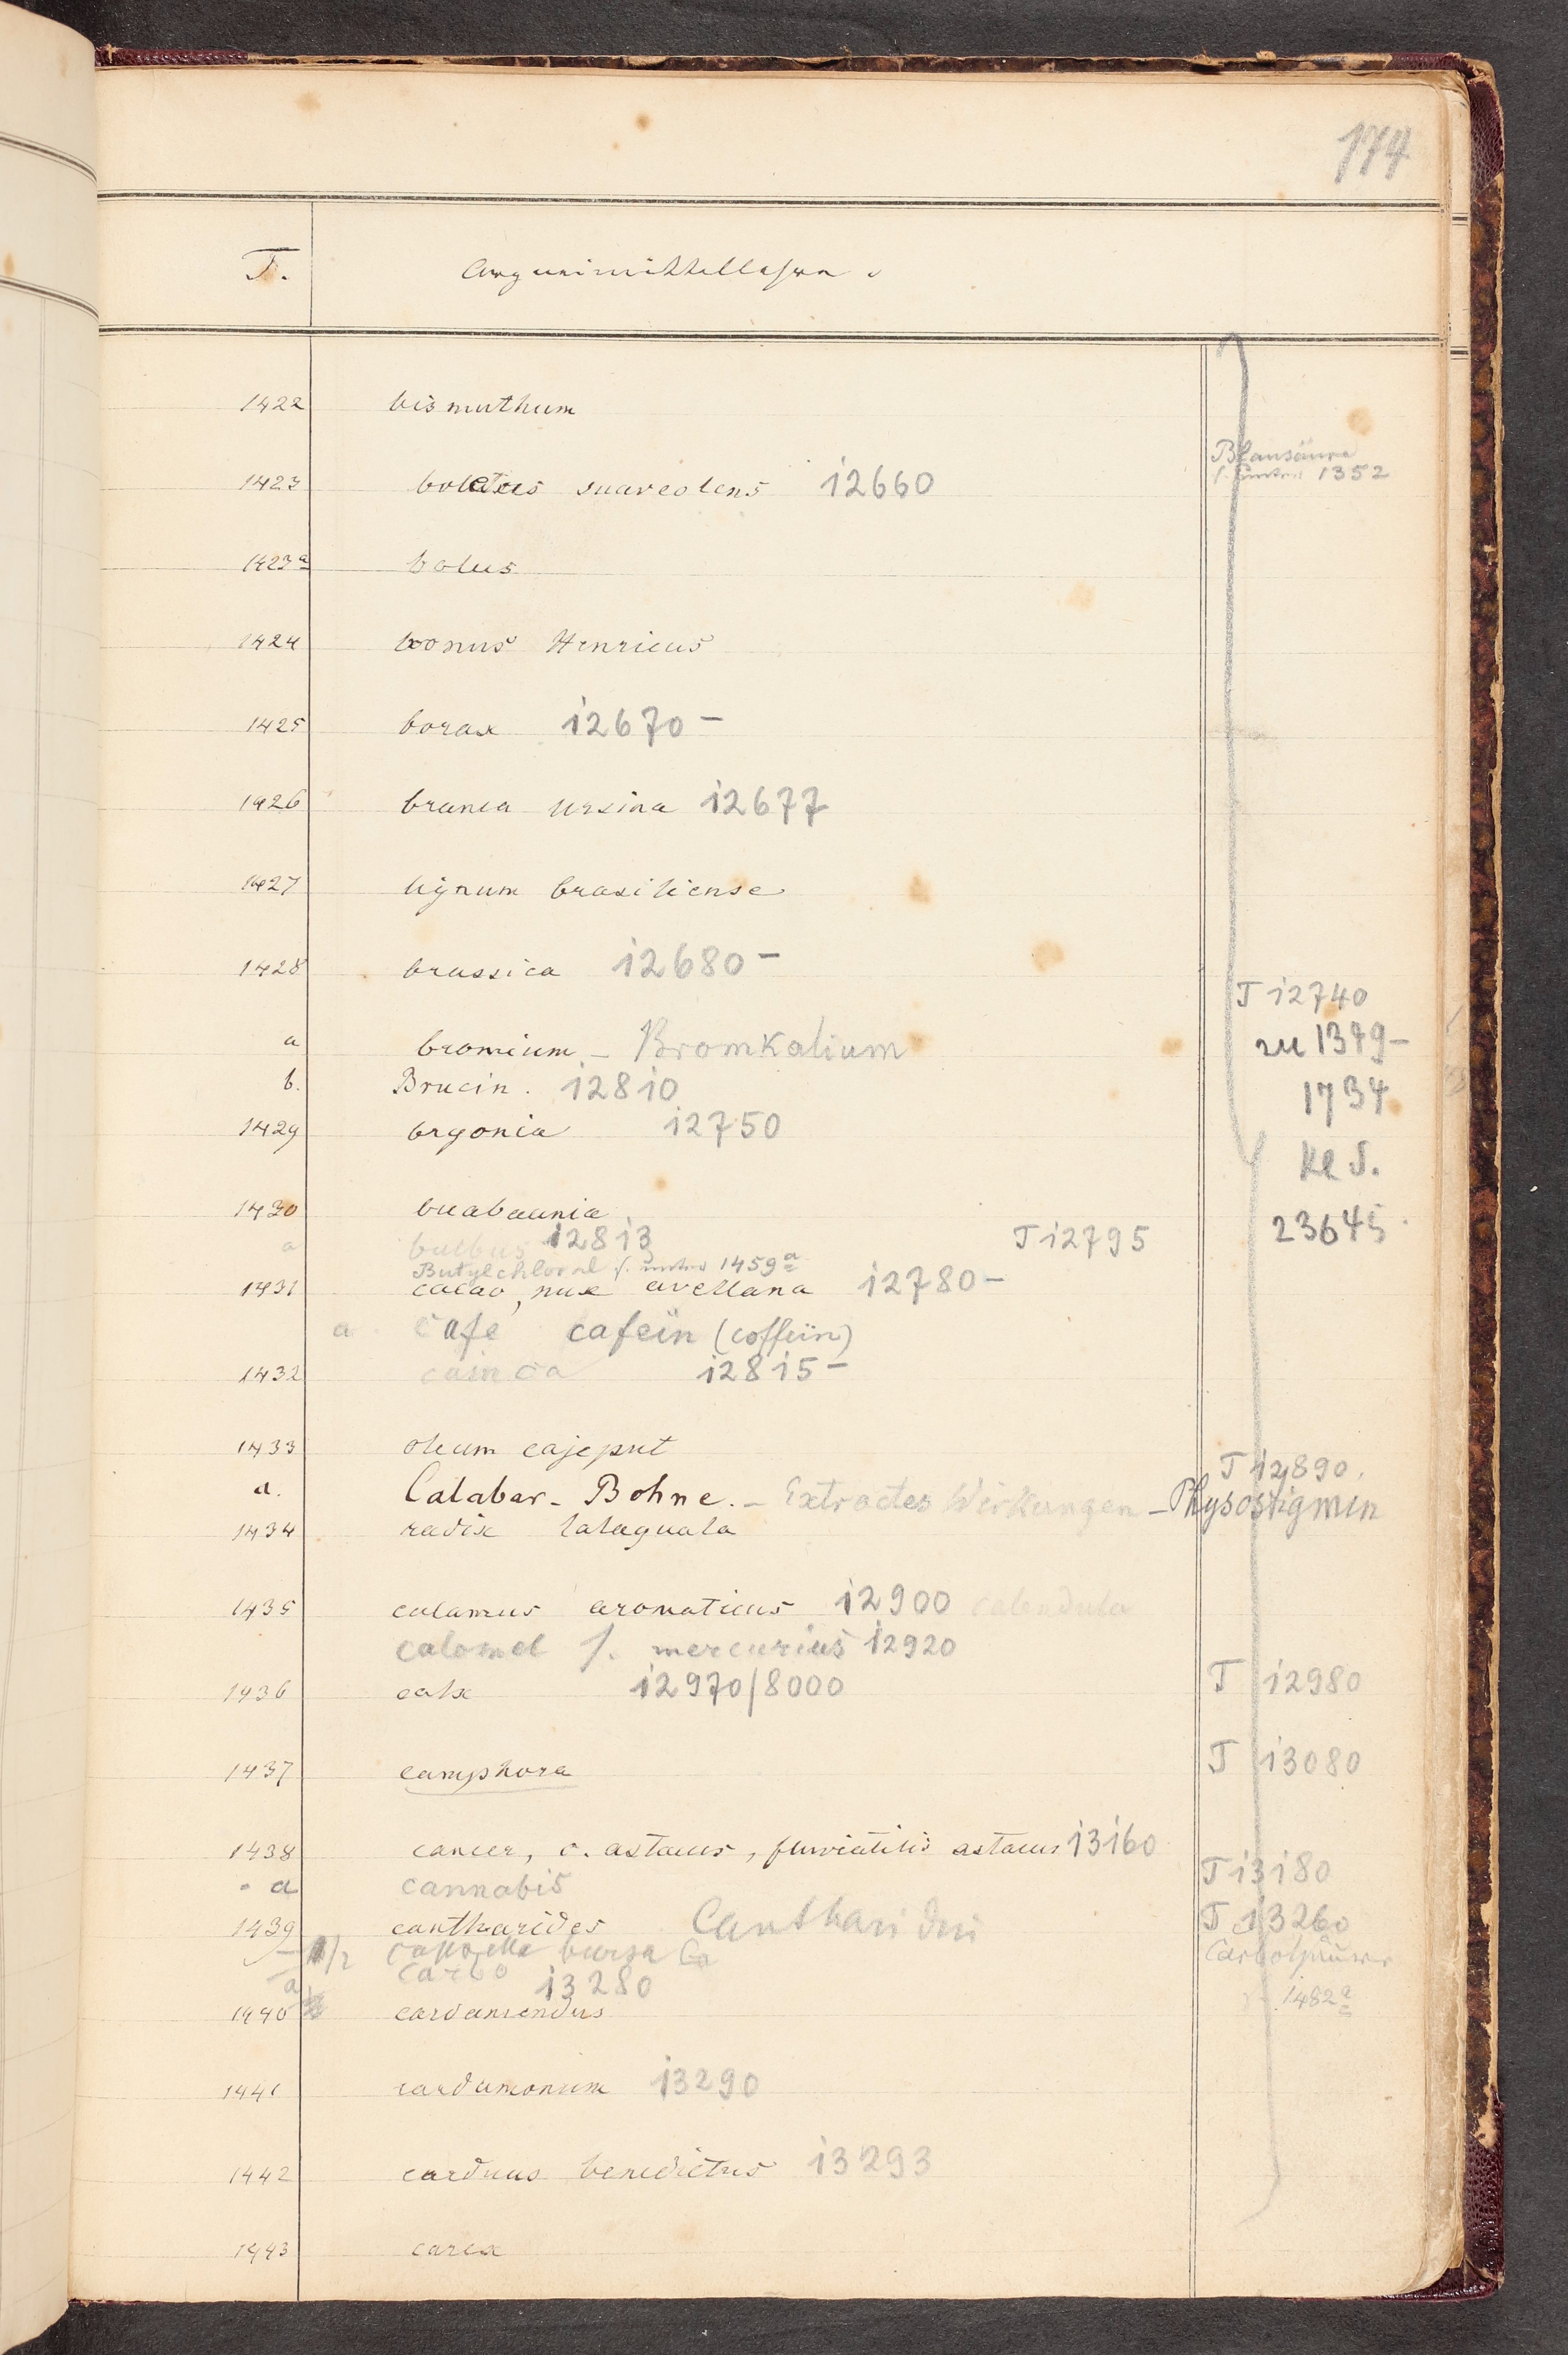 174
T. Arzneimittellehre.
1422 bismuthum
Blausäure
1423 boletus suaveolens 12660
s. unter 1352
1423a bolus
1424 bonus Henricus
1425 borax 12670 –
1426 branca ursina 12677
1427 lignum brasiliense
1428 brassica 12680 –
T 12740
a bromium – Bromkalium zu 1379–
b. Brucin. 12810 1734
1429 bryonia 12750
23645
1430
a bulbus 12813 T 12795
Butylchloral s. unter 1459a
1431 cacao, nux avellana 12780 –
a cafe cafeïn (coffeïn)
1432 cainca 12815 –
1433 oleum cajeput
T 12890.
a. Calabar-Bohne. – Extractes Wirkungen – Physostigmin
1434 radix calaguala
1435 calamus aromaticus 12900 calendula
calomel s. mercurius 12920
1436 calx 12970/8000 T 12980
1437 camphora T 13080
1438 cancer, c. astacus, fluviatilis astacus 13160
a cannabis T 13180
1439 cantharides Cantharidin T 13260
1/2 capsella bursa Carbolsäure
a carbo 13280
1482a
1440
1441 cardamomum 13290
1442 carduus benedictus 13293
1443 carex